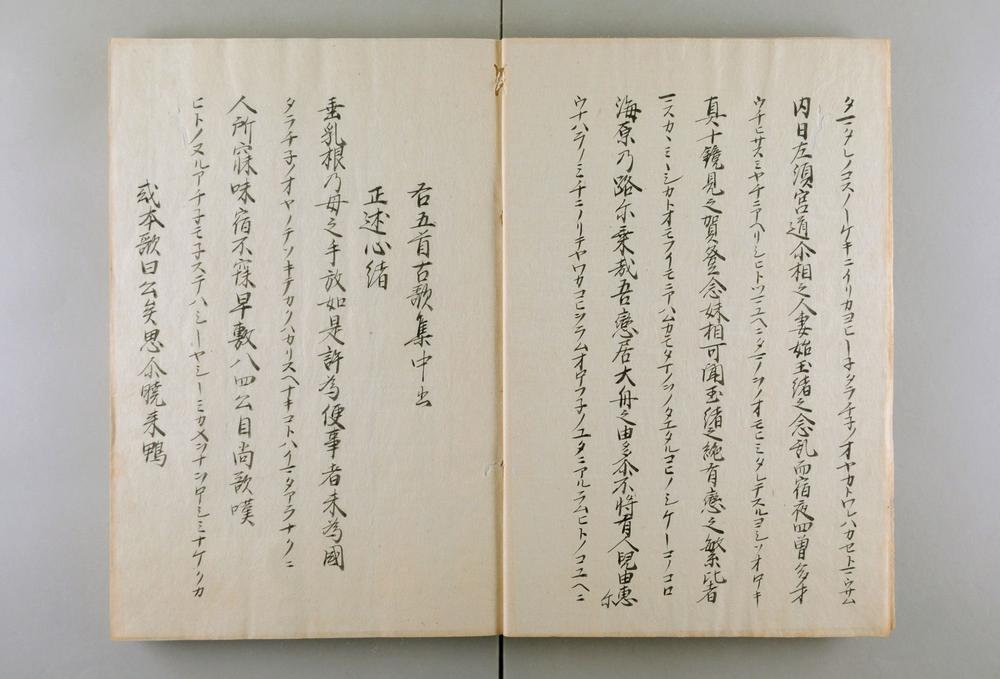 タマタレノコスノスケキニイリカヨヒコネタラチネノオヤカトワレハカセトマウサム
内日左須宮道尓相之人妻姤玉緒之念乱而宿夜四曽多才
ウチヒサスミヤチニアヘリシヒトツマユヘニタマノヲノオモヒミタレテヌルヨシソオホキ
真十鏡見之賀登念妹相可聞玉緒之絶有戀之繁比者
マスカヽミミシカトオモフイモニアハムカモタマノヲノタエタルコヒノシケキコノコロ
海原乃路尓乗哉吾戀居大舟之由多尓不将有人兒由恵尓
ウナハラノミチニノリテヤワカコヒヲラムオホフネノユタニアルラムヒトノコユヘニ
右五首古歌集中出
正述心緒
垂乳根乃母之手放如是許為便事者未為國
タラチネノオヤノテソキテカクハカリスヘナキコトハイマタアラナクニ
人所寐味宿不寐早敷八四公目尚歌嘆
ヒトノヌルアチネモネステハシキヤシキミカメヲナヲホシミナケクカ
或本歌曰公矣思尓暁来鴨